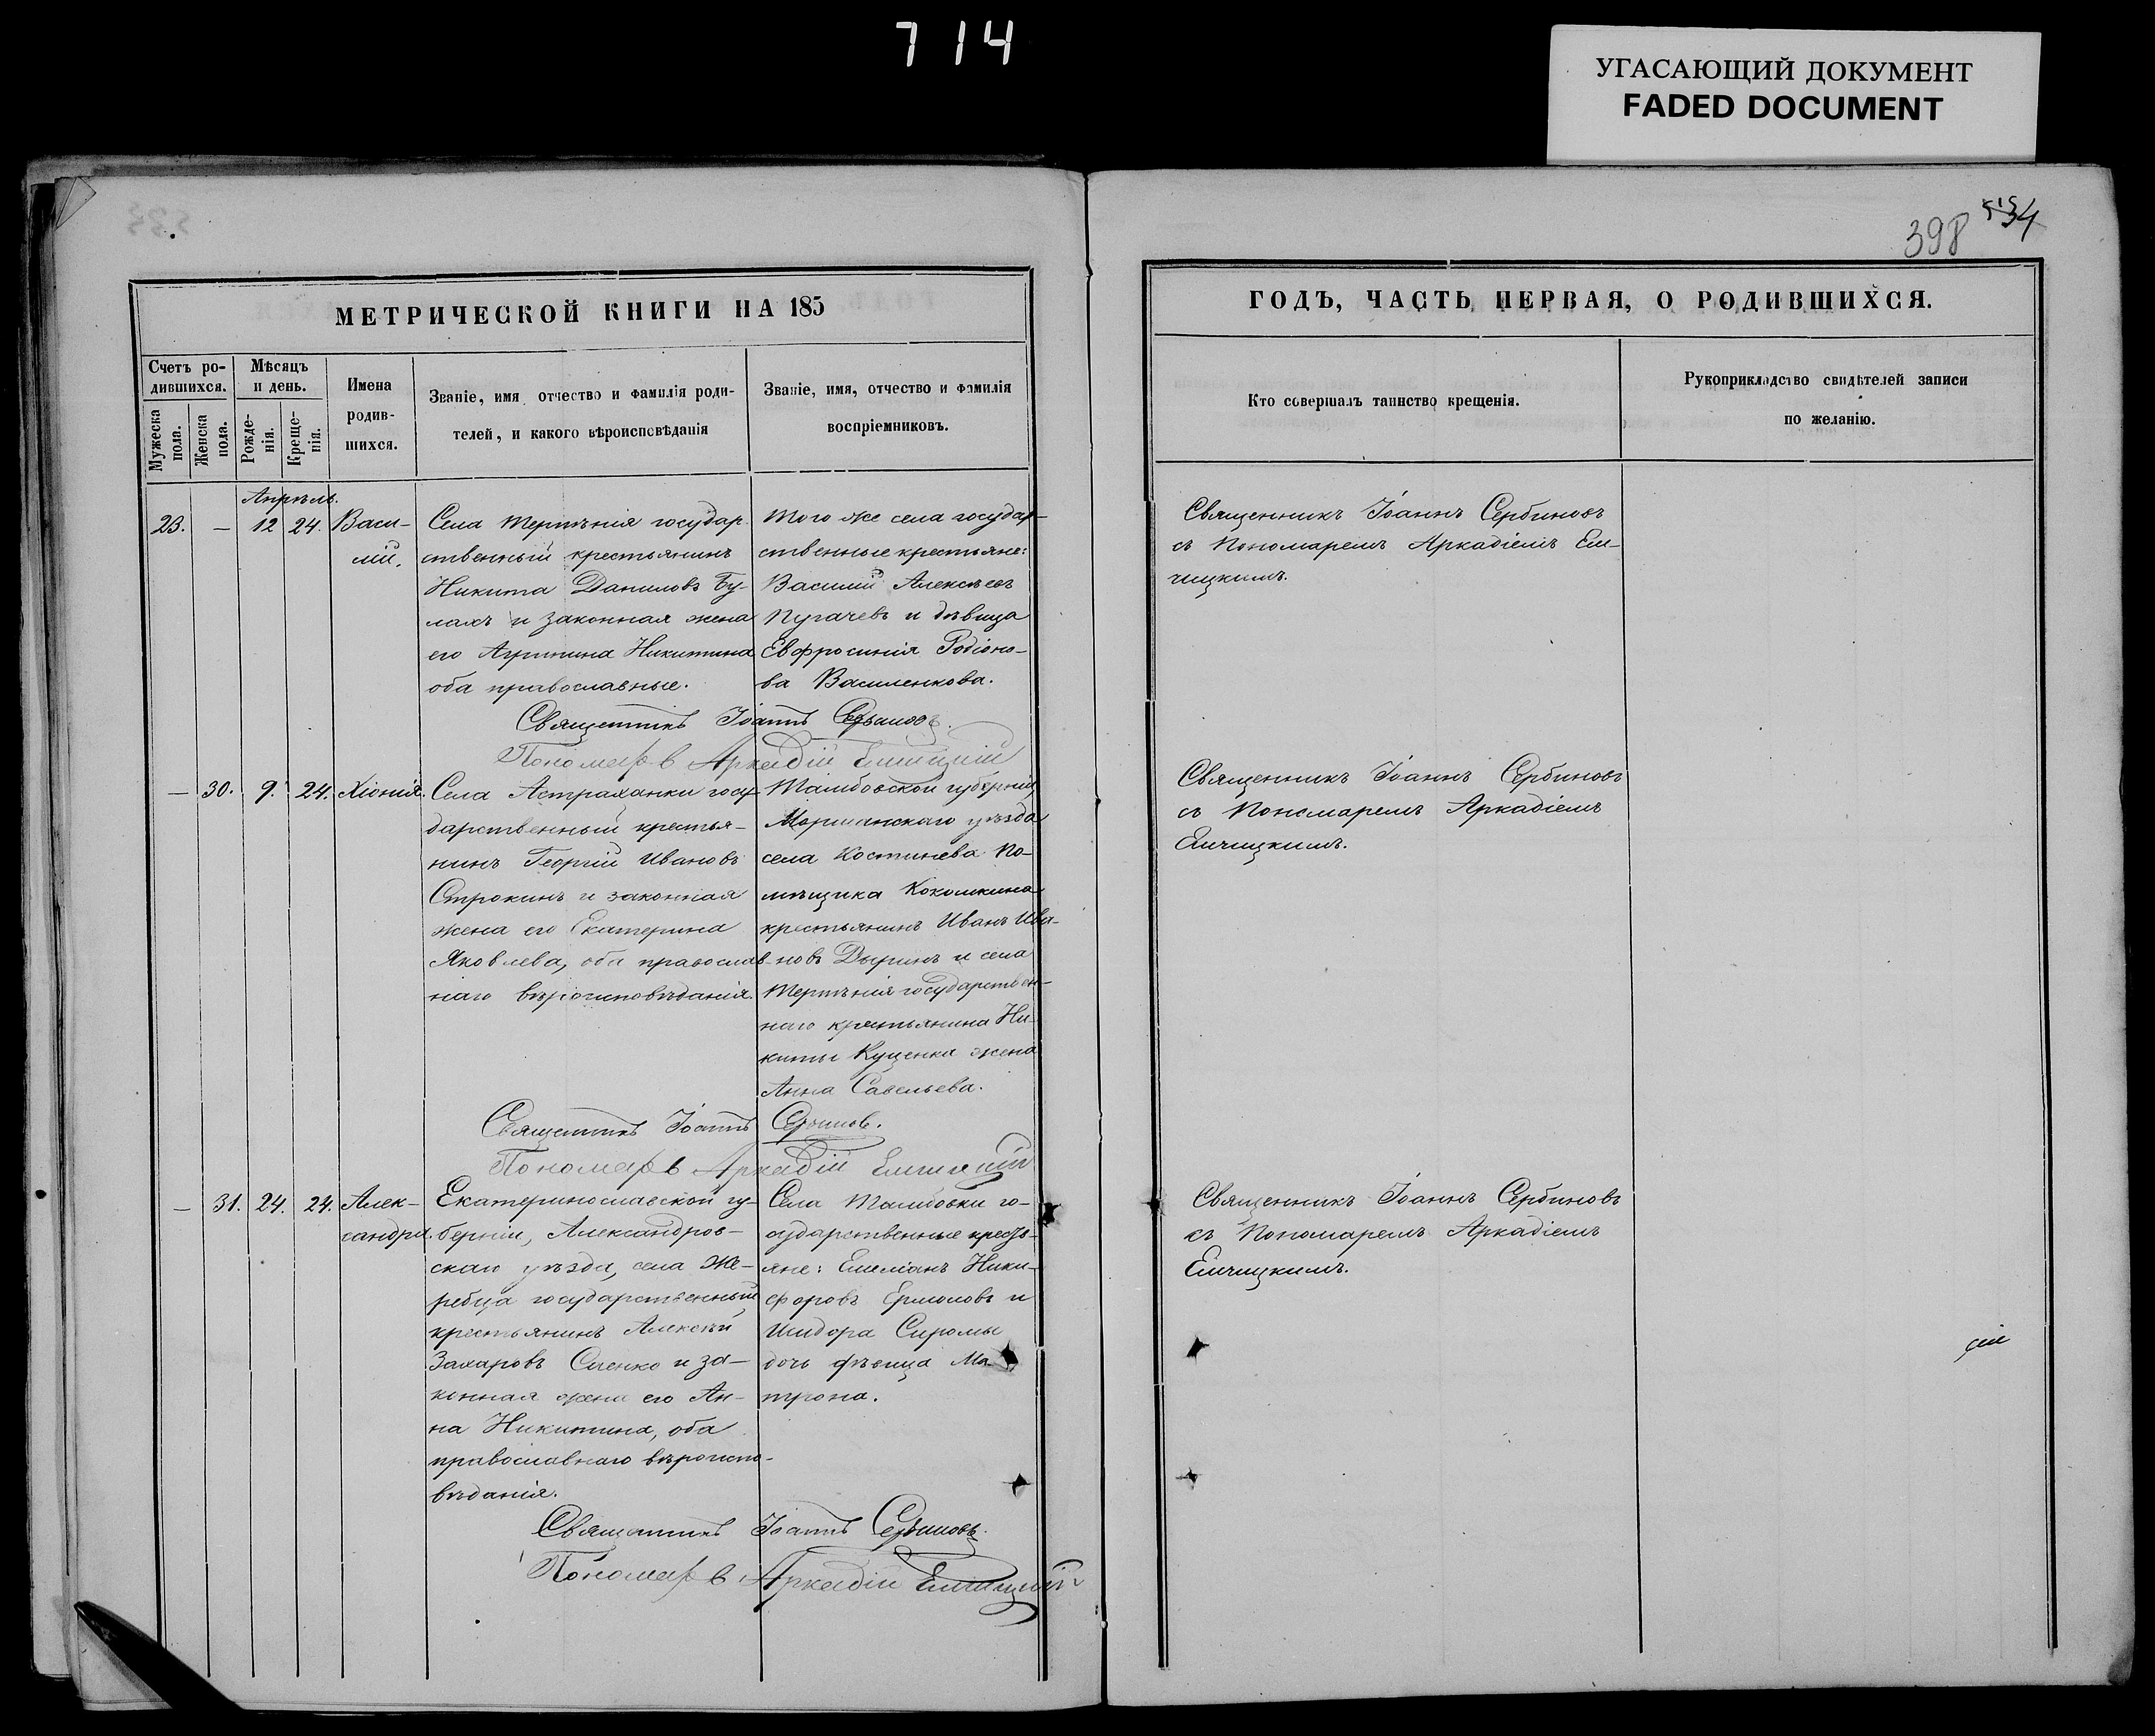 714
УГАСАЮЩИЙ ДОКУМЕНТ
FADED DOCUMENT
398 34
МЕТРИЧЕСКОЙ КНИГИ НА 185
Счетъ ро-
дившихся.
Мужеска
пола.
Женска
пола.
Мѣсяцъ
и день.
Рожде-
нія.
Креще-
нія.
Имена
родив-
шихся.
Званіе, имя отчество и фамилія роди-
телей, и какого вѣроисповѣданія
Званіе, имя, отчество и фамилія
воспріемниковъ.
Апрѣль.
23. — 12 24. Васи-
лій.
Села Терпѣнія государ-
ственный крестьянинъ
Никита Даниловъ Бу-
лахъ и законная жена
его Агрипина Никитина
оба православные.
Того же села государ-
ственные крестьяне:
Василій Алексѣевъ
Пугачевъ и дѣвица
Евфросинія Родіоно-
ва Василенкова.
Священникъ Іоаннъ Сербиновъ.
Пономарь Аркадій Емчицкій
— 30. 9. 24. Хіонія.
Села Астраханки госу-
дарственный крестья-
нинъ Георгій Ивановъ
Строкинъ и законная
жена его Екатерина
Яковлева, оба православ-
наго вѣроисповѣданія.
Тамбовской губерніи,
Моршанскаго уѣзда
села Костинева по-
мѣщика Коколкина
крестьянинъ Иванъ Ива-
новъ Дыринъ и села
Терпѣнія государствен-
наго крестьянина Ни-
киты Куценка жена
Анна Савельева.
Священникъ Іоаннъ Сербиновъ.
Пономарь Аркадій Емчицкій
— 31. 24. 24. Алек-
сандра.
Екатеринославской гу-
берніи, Александров-
скаго уѣзда, села Же-
ребца государственный
крестьянинъ Алексѣй
Захаровъ Сленко и за-
конная жена его Ан-
на Никитина, оба
православнаго вѣроиспо-
вѣданія.
Села Тамбовки го-
сударственные кресть-
яне: Емеліанъ Ники-
форовъ Ермоловъ и
Исидора Сиромы
дочь дѣвица Ма-
трона.
Священникъ Іоаннъ Сербиновъ.
Пономарь Аркадій Емчицкій
ГОДЪ, ЧАСТЬ ПЕРВАЯ, О РОДИВШИХСЯ.
Кто совершалъ таинство крещенія.
Рукоприкладство свидѣтелей записи
по желанію.
Священникъ Іоаннъ Сербиновъ
съ Пономаремъ Аркадіемъ Ем-
чицкимъ.
Священникъ Іоаннъ Сербиновъ
съ Пономаремъ Аркадіемъ
Емчицкимъ.
Священникъ Іоаннъ Сербиновъ
съ Пономаремъ Аркадіемъ
Емчицкимъ.